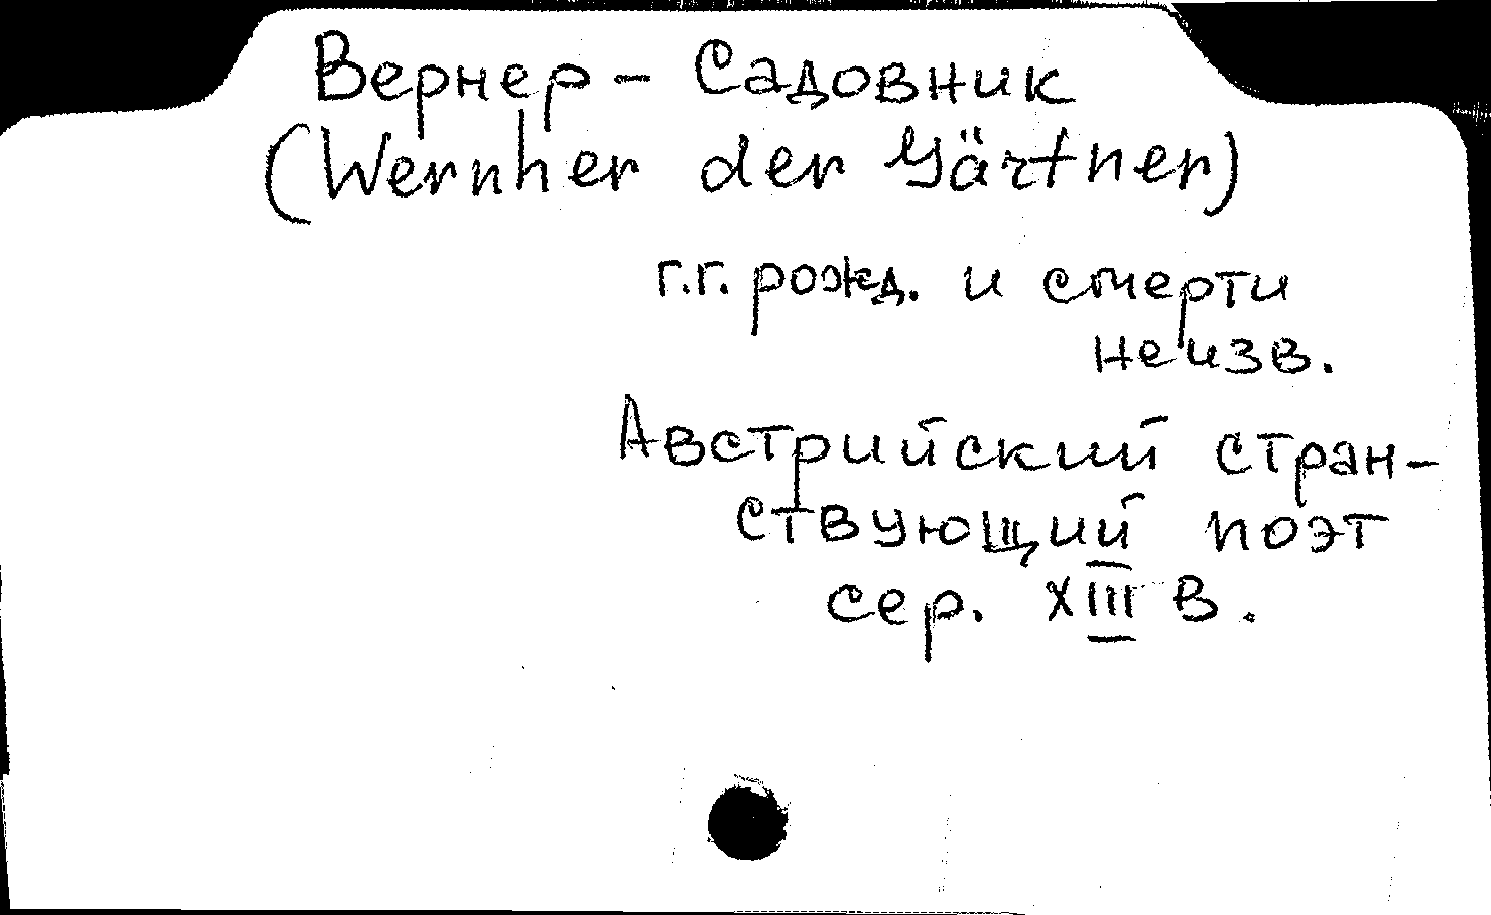 Вернер - Садовник
(Wernher der Gärtner)
г.г. рожд. и смерти
неизв.
Австрийский стран-
ствующий поэт
сер. XIII в.